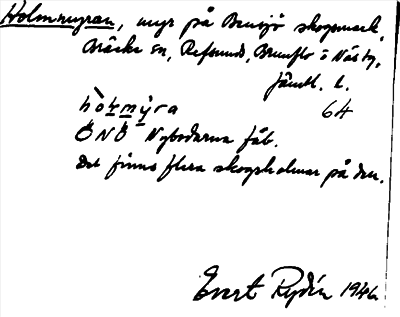 Holmmyran, myr på Bensjö skogsmark,
Bräcke sn, Refsunds, Brunflo o Näs tg,
Jämtl. l.
hòłmy̆ra 64
ÖNÖ Nybodarna fäb.
Det finns flera skogsholmar på den.
Evert Rydén 1946